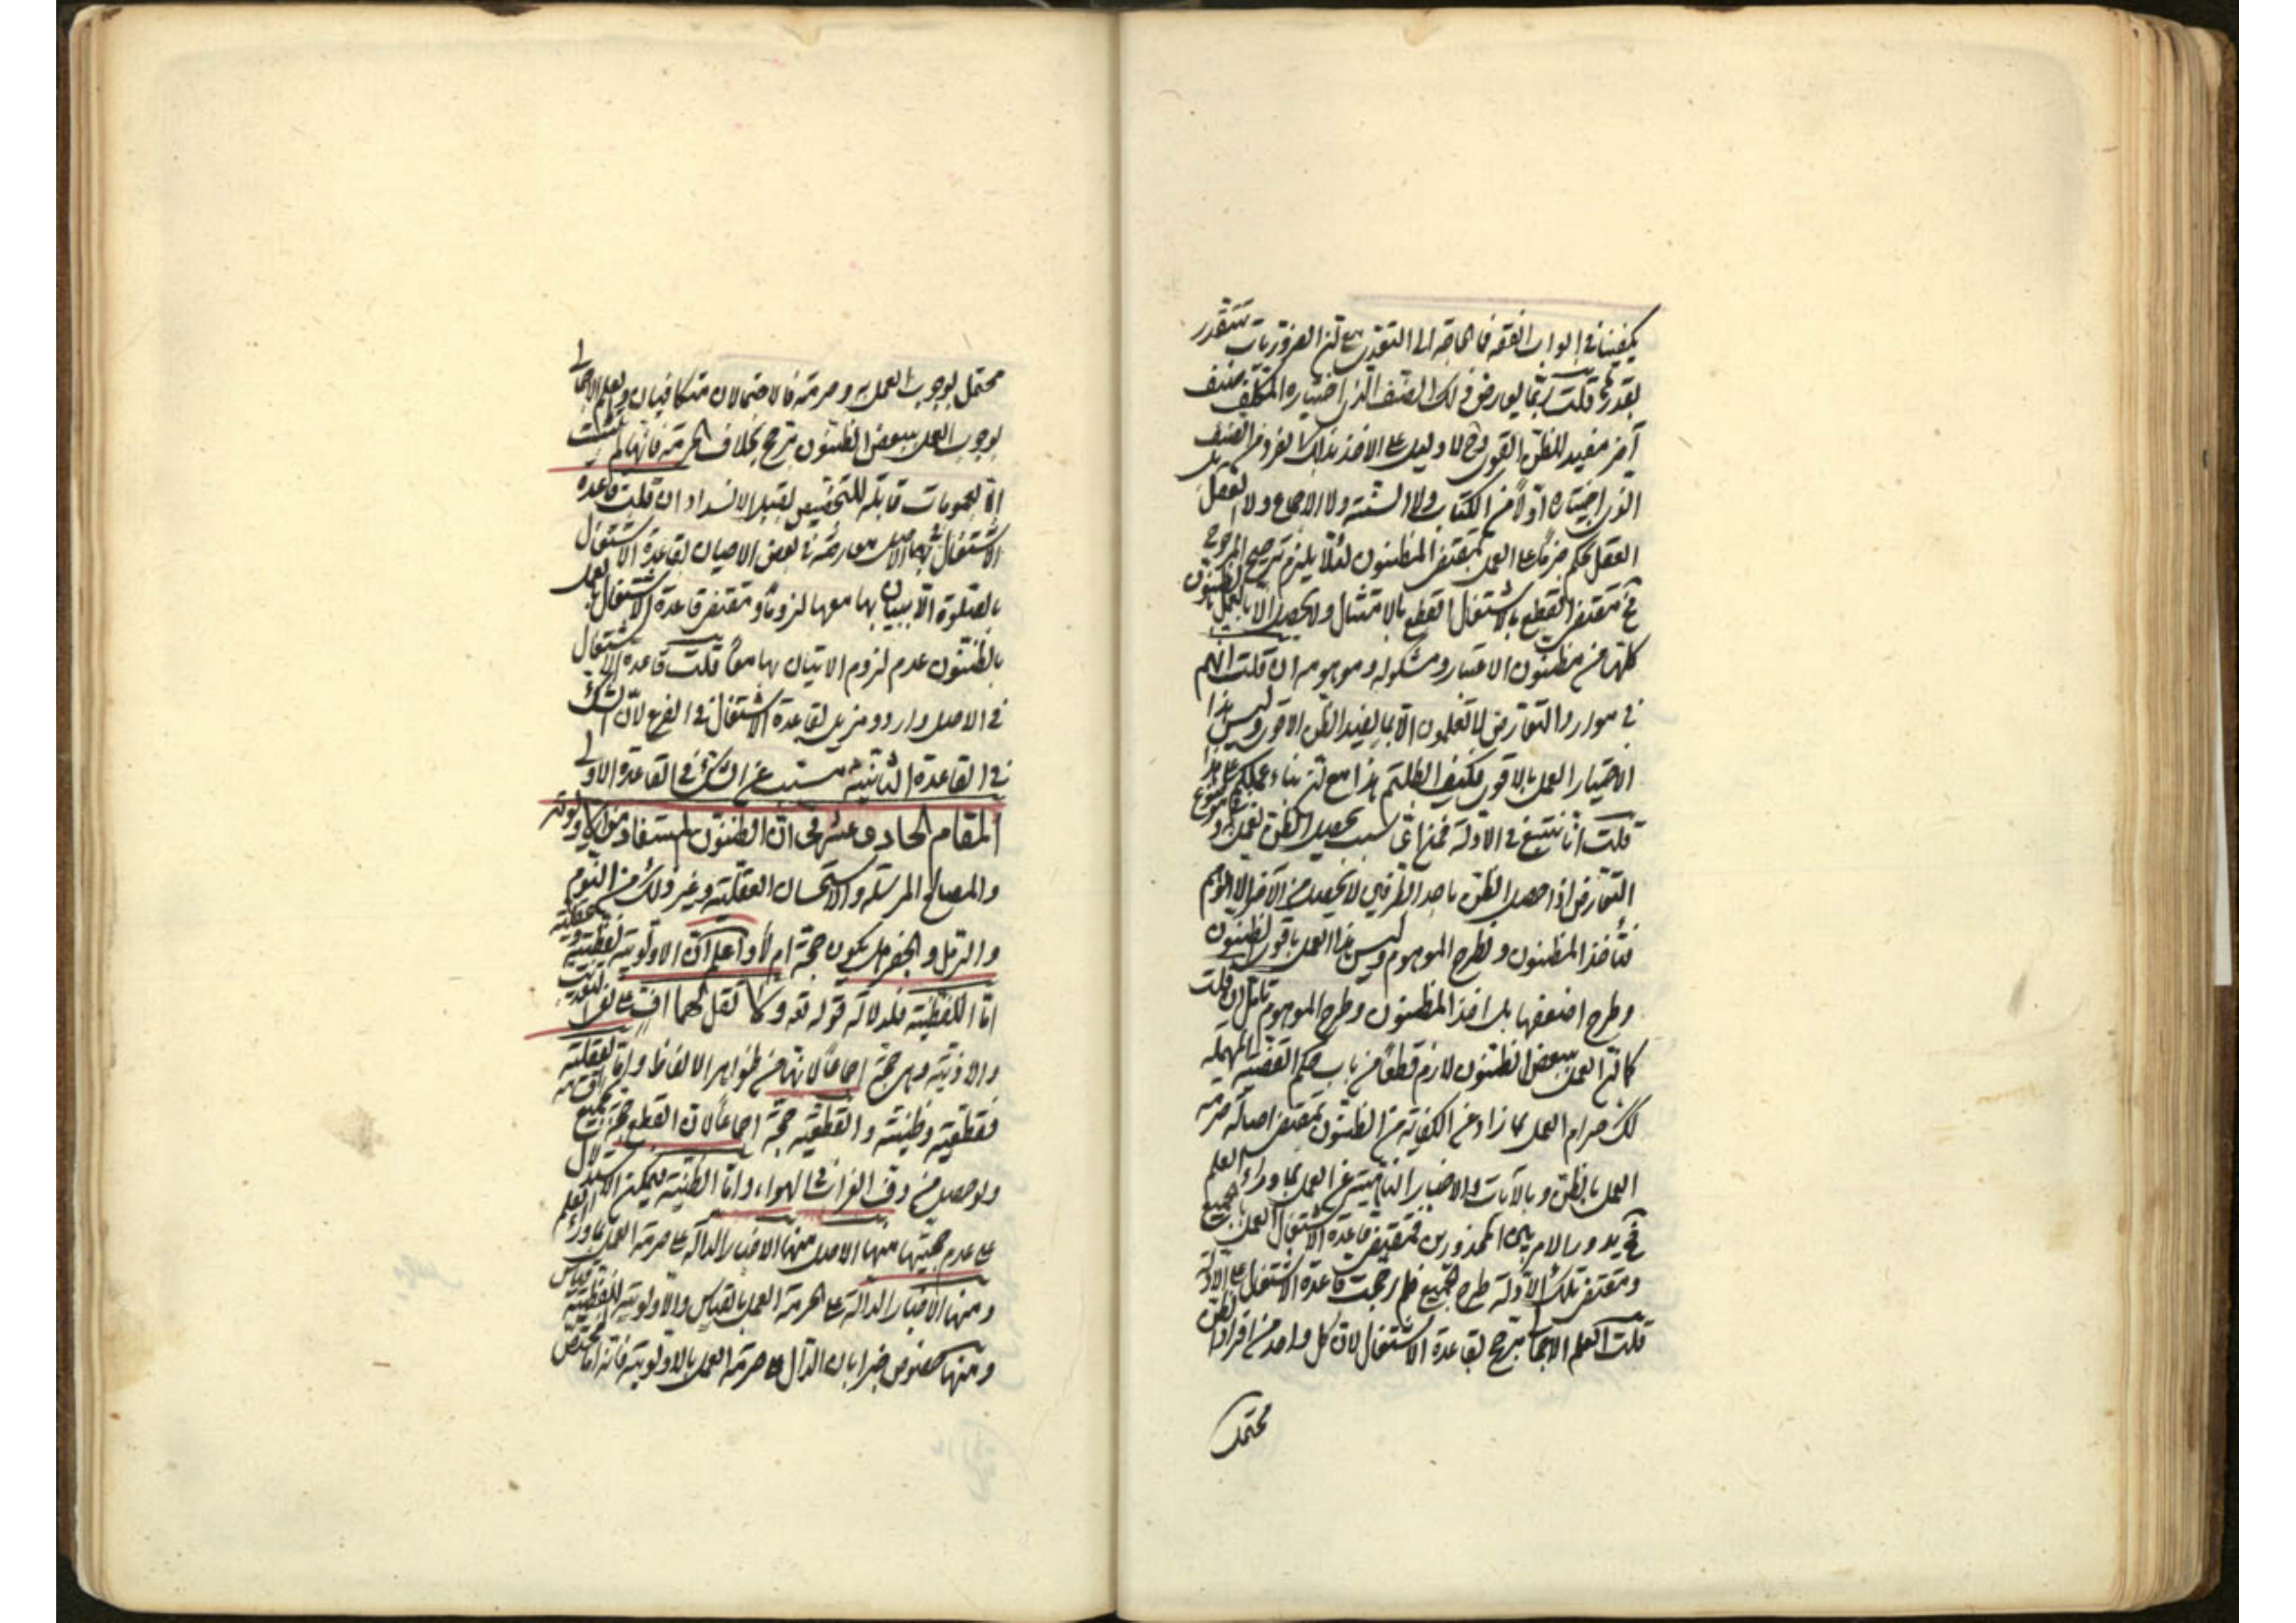 يكفينا في ابواب الفقه فما الحاجة الى التعدي مع ان الضروريات تتقدر
بقدرها قلت ربما يعارض ذلك الصنف الذي اختياره المكلف صنف
آخر مفيد للظن القوي ولا دليل على الاخذ بذلك الفرد من الصنف
الذي اختياره اولا من الكتاب ولا السنة ولا الاجماع ولا العقل بل
العقل يحكم جزما على العمل بمقتضى المظنون لئلا يلزم ترجيح المرجوح
فح مقتضى القطع بالاشتغال القطع بالامتثال ولا يحصل الا بالعمل بالظنون
كلها من مظنون الاعتبار ومشكوكه وموهومه ان قلت انتم
في موارد التعارض لا تعلمون الا بما يفيد الظن الاقوى وليس هذا
الاختيار العمل بالاقوى فكيف ابطلتم هذا مع ان بناء عملكم على هذا
قلت انا نتبع في الادلة فمنها سبب تحصيل الظن
التعارض اذا حصل الظن باحد الطرفين لا يحصل من الآخر الا الوهم
فنأخذ المظنون ونطرح الموهوم وليس هذا العمل باقوى الظنون
وطرح اضعفها بل اخذ المظنون وطرح الموهوم تأمل ان قلت
كما ان العمل ببعض الظنون لازم قطعا من باب حكم القضية المهملة
كك حرام العمل بما زاد عن الكفاية من الظنون بمقتضى اصالة حرمة
العمل بالظن وبالآيات والاخبار الناهيتين عن العمل بما وراء العلم
فح يدور الامر بين المحذورين فمقتضى قاعدة الاشتغال العمل بالجميع
ومقتضى تلك الادلة طرح الجميع فلم رجحت قاعدة الاشتغال على الادلة
قلت العلم الاجمالي يرجح لقاعدة الاشتغال لان كل واحد من افراد الظن
محتمل
محتمل لوجوب العمل به وحرمته فالاحتمالان متكافيان والعلم الاجمالي
بوجوب العمل ببعض الظنون يرجح بخلاف الحرمة فانها لم يثبت
الا بعمومات قابلة للتخصيص لقبل الانسداد ان قلت قاعدة
الاشتغال في الاصل معارضة في بعض الاحيان لقاعدة الاشتغال
بالصلوة الا بها معها لزوما ومقتضى قاعدة الاشتغال بالعمل
بالظنون عدم لزوم الاتيان بها معها قلت قاعدة الاشتغال
في الاصل وارد ومزيل لقاعدة الاشتغال في الفرع لان الشك
في القاعدة الثانية مسبب عن الشك في القاعدة الاولى
المقام الحادى عشر في ان الظنون المستفاد من الاولوية
والمصالح المرسلة والاستحسان العقلية وغير ذلك من النوم
والرمل والجفر هل يكون حجة ام لا واعلم ان الاولوية لفظية وعقلية
اما اللفظية فلدلالة قوله تعه ولا تقل لهما اف على
والاذية وهي حجة اجماعا لانها من ظواهر الالفاظ واما العقلية
فقطعية وظنية والقطعية حجة اجماعا لان القطع حجة
ولو حصل من دف الفراش في الهواء واما الظنية فيمكن الاستدلال
على عدم حجيتها منها الاصل منها الاخبار الدالة على حرمة العمل بما وراء العلم
ومنها الاخبار الدالة على حرمة العمل بالقياس والاولوية اللفظية قياس
ومنها خصوص خبر ابان الدال على حرمة العمل بالاولوية فانه